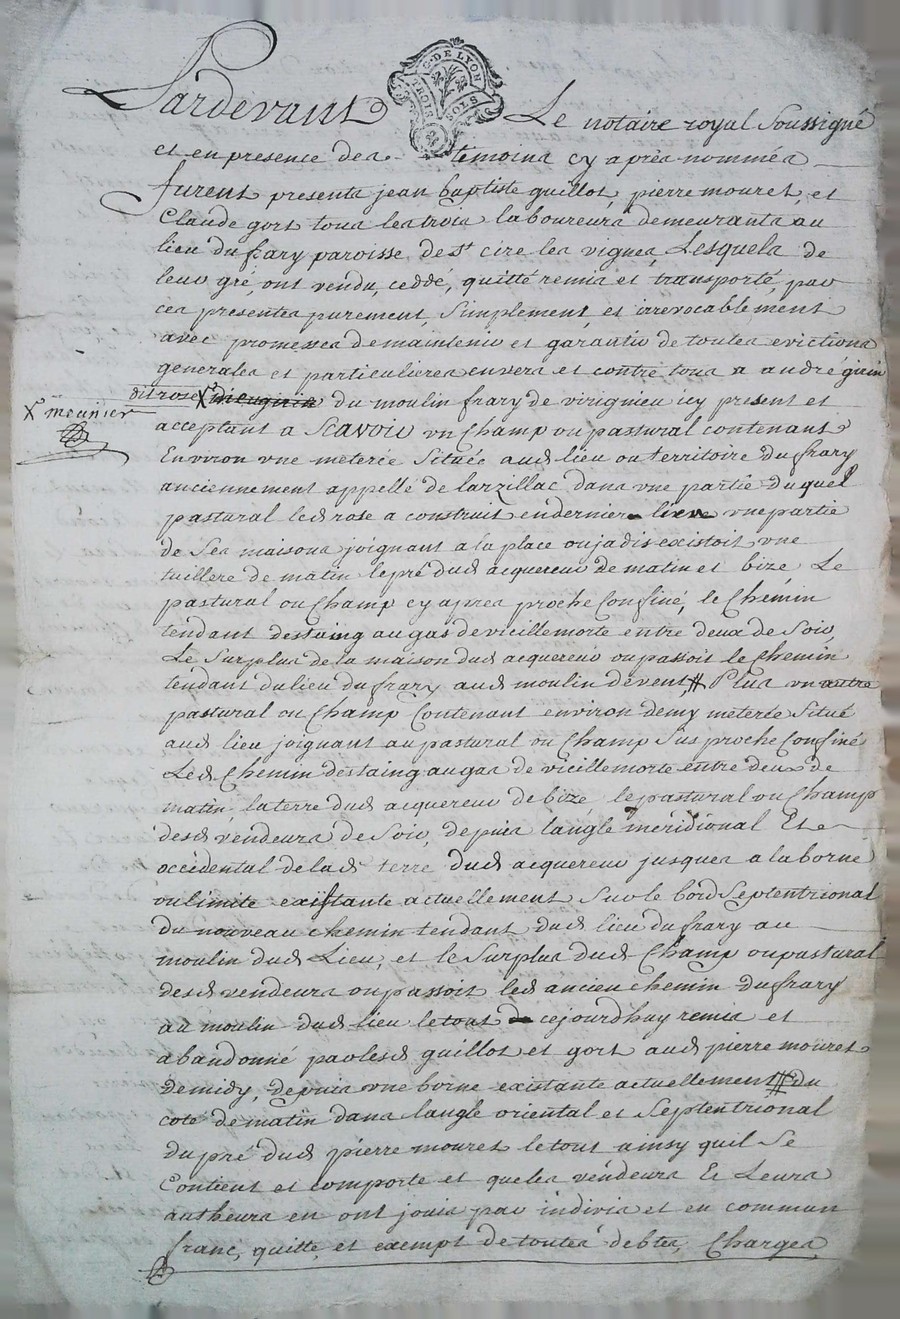 Pardevant Le notaire royal soussigné
G. DE LYON
TROIS SOLS
et en presence des temoins cy apres nommés
furent presents jean baptiste guillot, pierre mouret, et
Claude gort tous les trois laboureurs demeurants au
lieu du frary paroisse de st cire les vignes, Lesquels de
leur gré, ont vendu, ceddé, quitté remis et transporté, par
ces presentes purement, simplement, et irrevocablement
avec promesses demaintenir et garantir de toutes evictions
generales et particulieres envers et contre tous a andré girin
dit rose X du moulin frary de virignieu icy present et
X meunier
acceptant a Scavoir un Champ ou pastural contenant
Environ une meterée Située aud lieu ou territoire du frary
anciennement appellé de larzillac dans une partie du quel
pastural led rose a construit en dernier lieu une partie
de Ses maisons joignant a la place ou jadis existoit une
tuillere de matin le pré dud acquereur de matin et bize, Le
pastural ou Champ cy apres proche Confiné, le Chemin
tendant destaing au gas de vieille morte entre deux de Soir,
Le Surplus de la maison dud acquereur ou passoit le Chemin
tendant du lieu du frary aud moulin de vent, # Plus un autre
pastural ou Champ Contenant environ demy meterée Situé
aud lieu joignant au pastural ou Champ Sus proche Confiné
Led Chemin destaing au gas de vieille morte entre deux de
matin, la terre dud acquereur de bize le pastural ou Champ
desd vendeurs de Soir, depuis langle méridional Et
occidental de lad terre dud acquereur jusques a la borne
ou limite existante actuellement Sur le bord Septentrional
du nouveau chemin tendant dud lieu du frary au
moulin dud Lieu, et le Surplus dud Champ ou pastural
desd vendeurs ou passoit led ancien chemin du frary
au moulin dud lieu le tout cejourdhuy remis et
abandonné par lesd guillot et gort aud pierre mouret
de midy, depuis une borne existante actuellement # du
coté de matin dans langle oriental et Septentrional
du pré dud pierre mouret le tout ainsy quil Se
Contient et comporte et que les vendeurs Et Leurs
autheurs en ont jouis par indivis et en commun
franc, quitte, et exempt de toutes debtes, Charges,